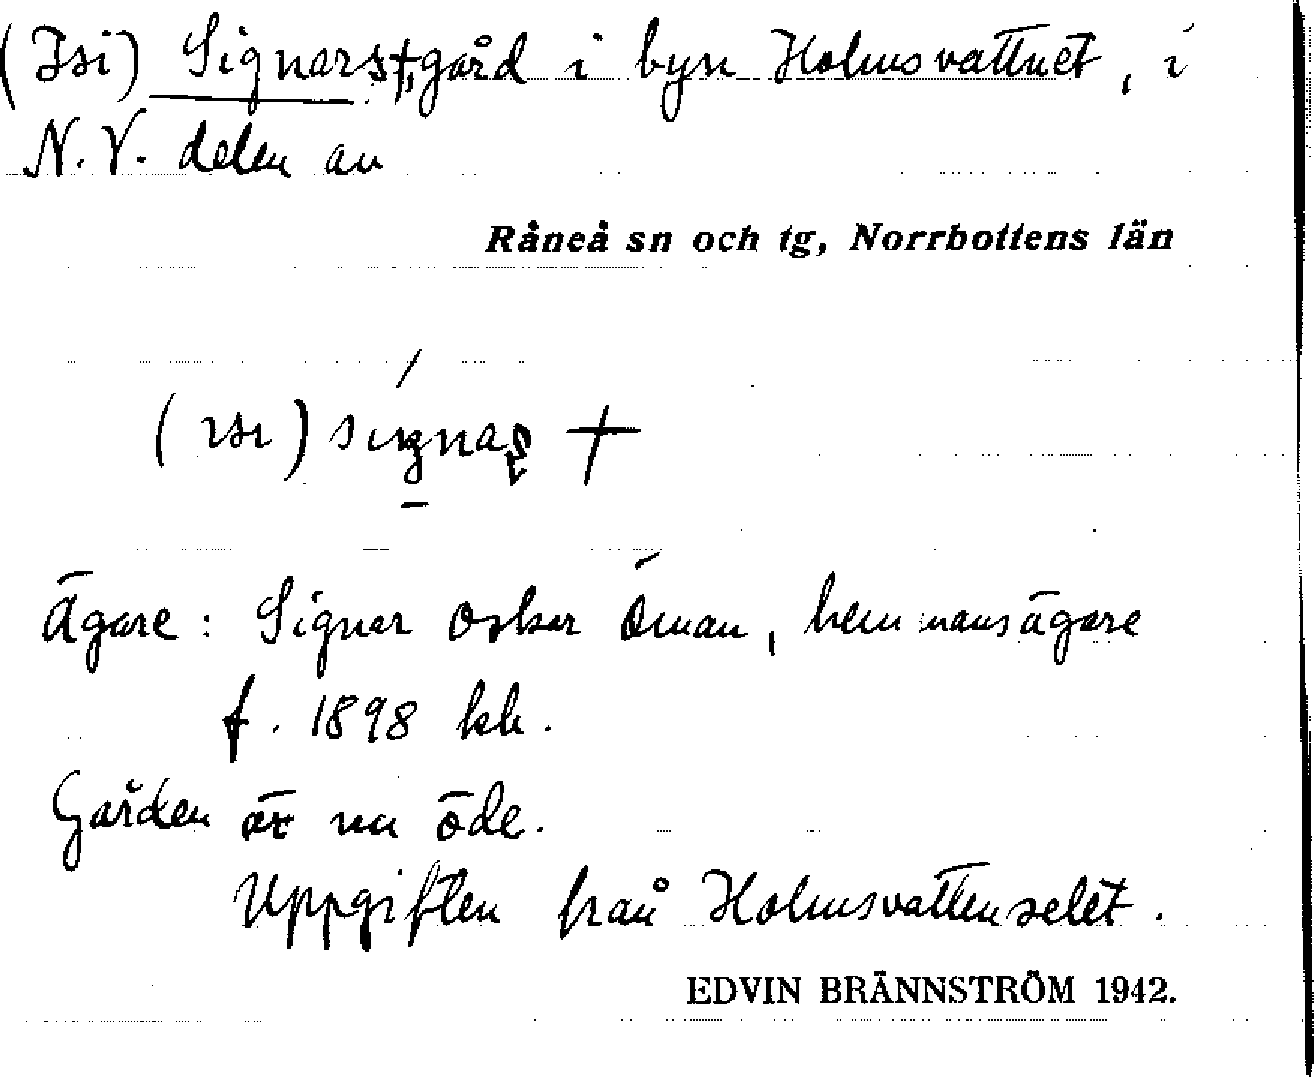 (Isi) Signars†, gård i byn Holmsvattnet, i
N.V. delen av
Råneå sn och tg, Norrbottens län
(ɪsɪ) +
Ägare: Signar Oskar Öman, hemmansägare
f. 1898 hh.
Gården är nu öde.
Uppgiften från Holmsvattenselet.
EDVIN BRÄNNSTRÖM 1942.